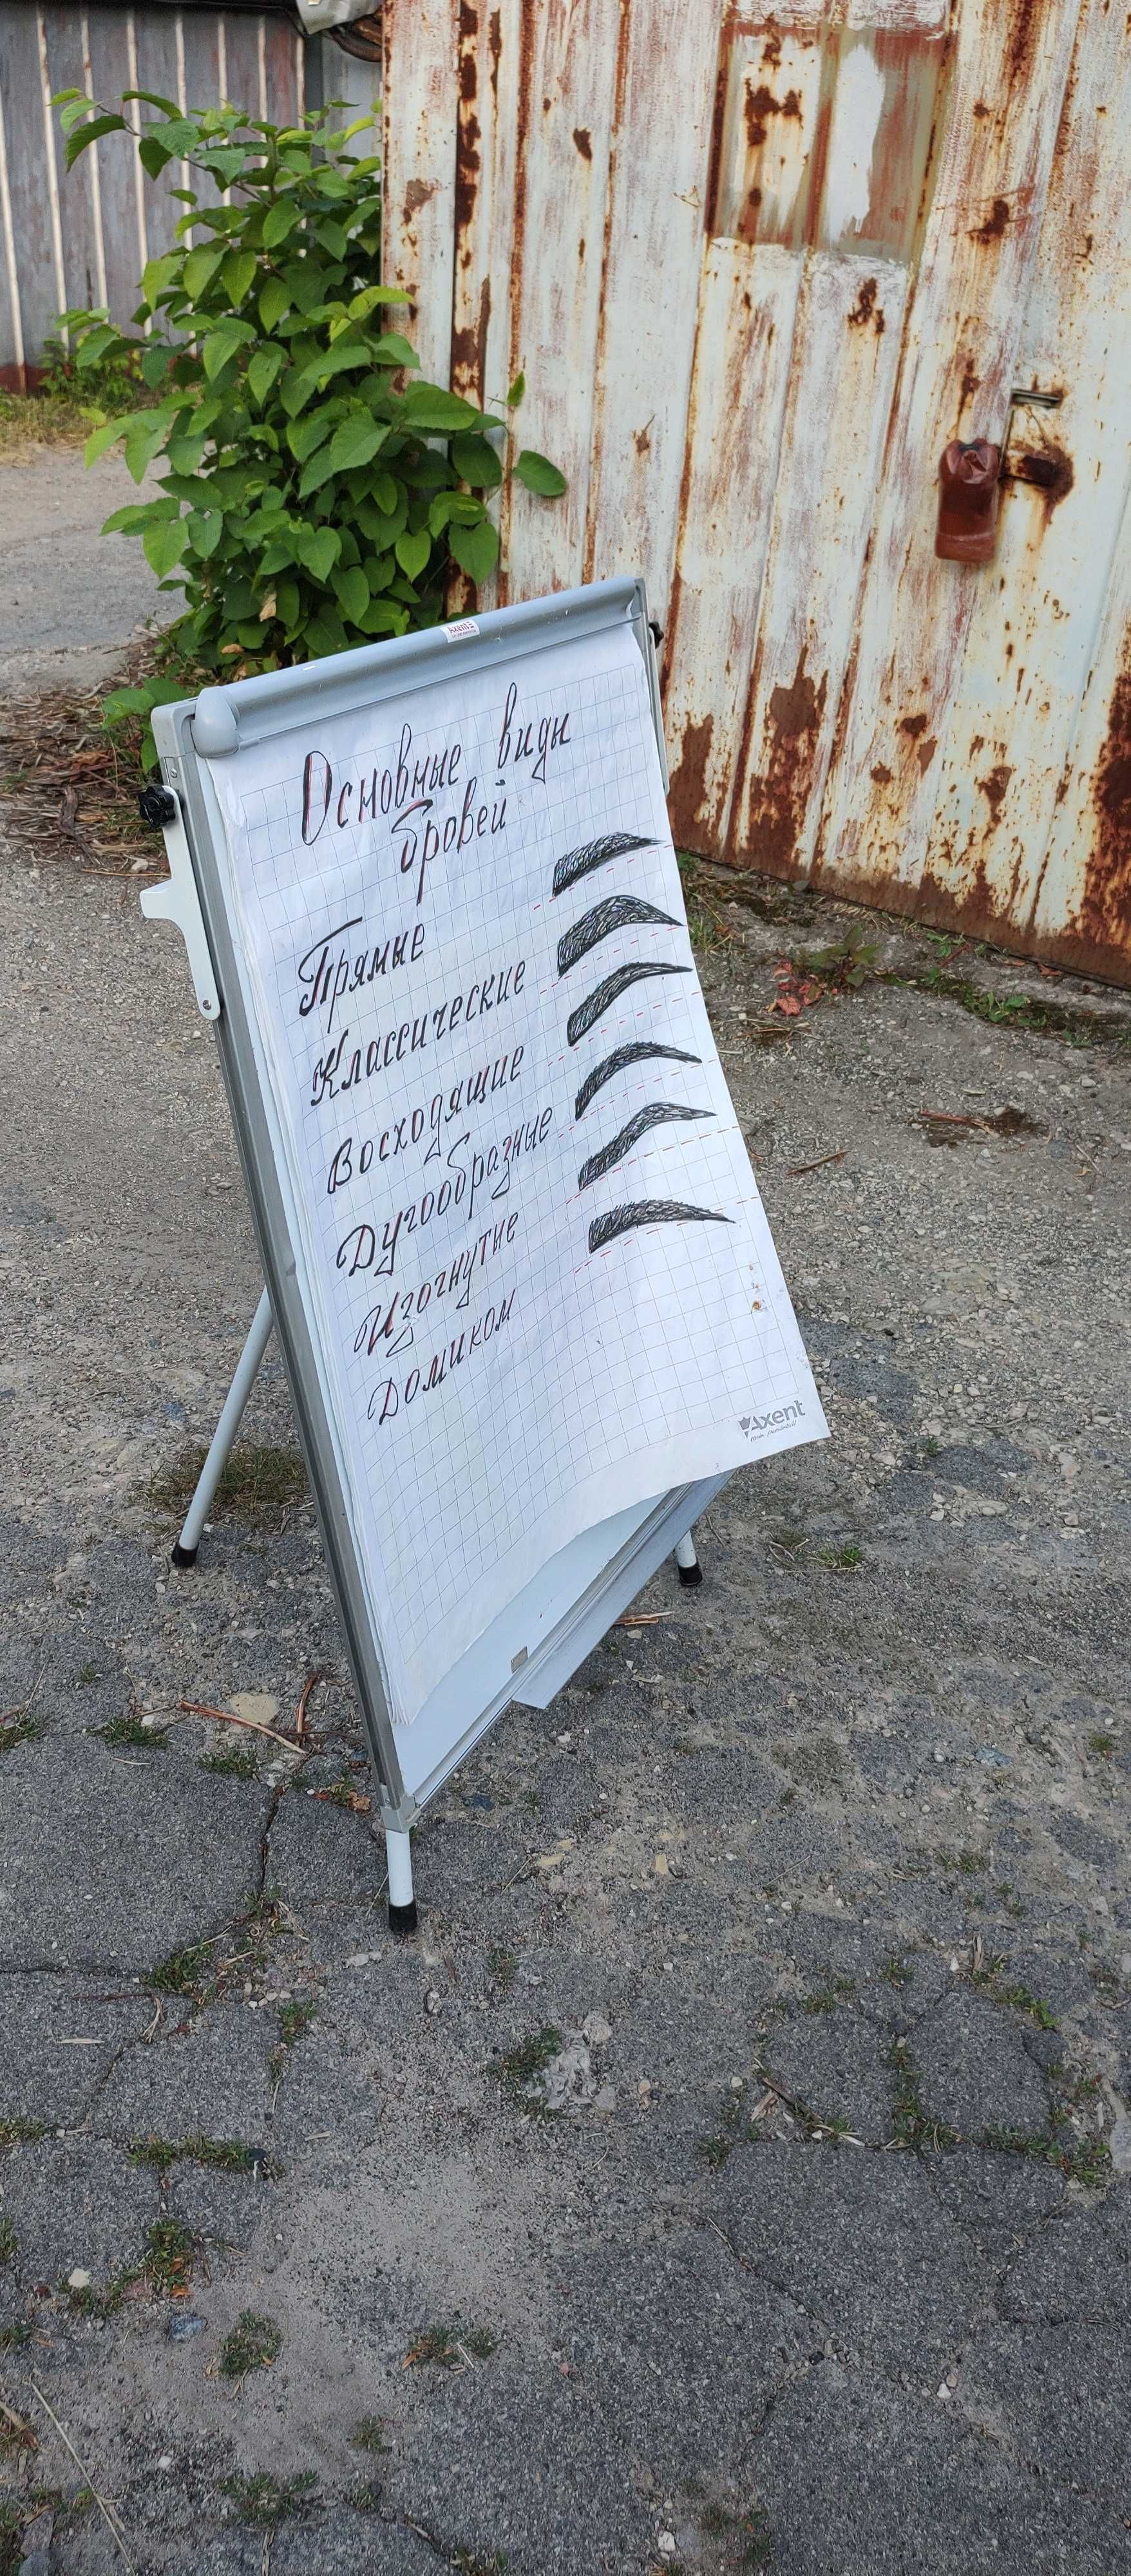 Основные виды
бровей
Прямые
Классические
Восходящие
Дугообразные
Изогнутые
Домиком
Axent